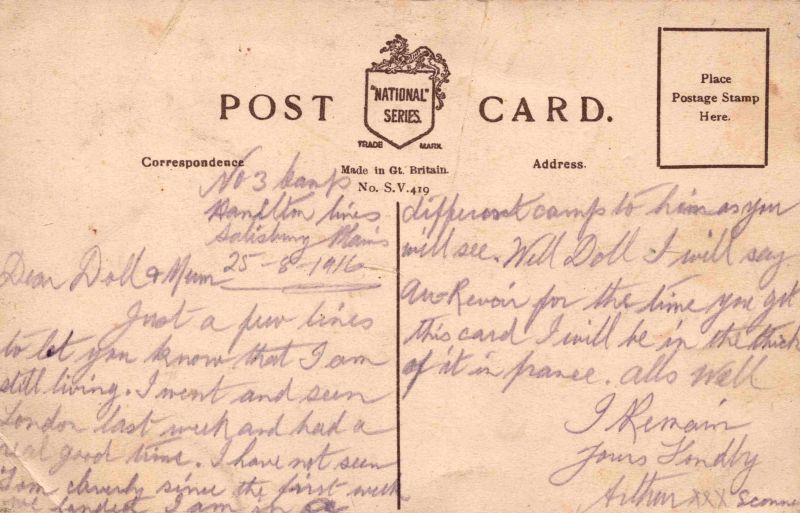 POST CARD.
"NATIONAL"
SERIES.
TRADE MARK.
Place
Postage Stamp
Here.
Correspondence
Made in Gt. Britain.
No. S.V.419
Address.
No 3 Camp
Hamilton lines
Salisbury Plains
25-8-1916
Dear Doll & Mum
Just a few lines
to let you know that I am
still living. I went and seen
London last week and had a
real good time. I have not seen
Tom since the first week
we landed I am in a
different camp to him as you
will see. Well Doll I will say
Au Revoir for the time you get
this card I will be in the thick
of it in france. alls Well
I Remain
Yours Fondly
Arthur XXX